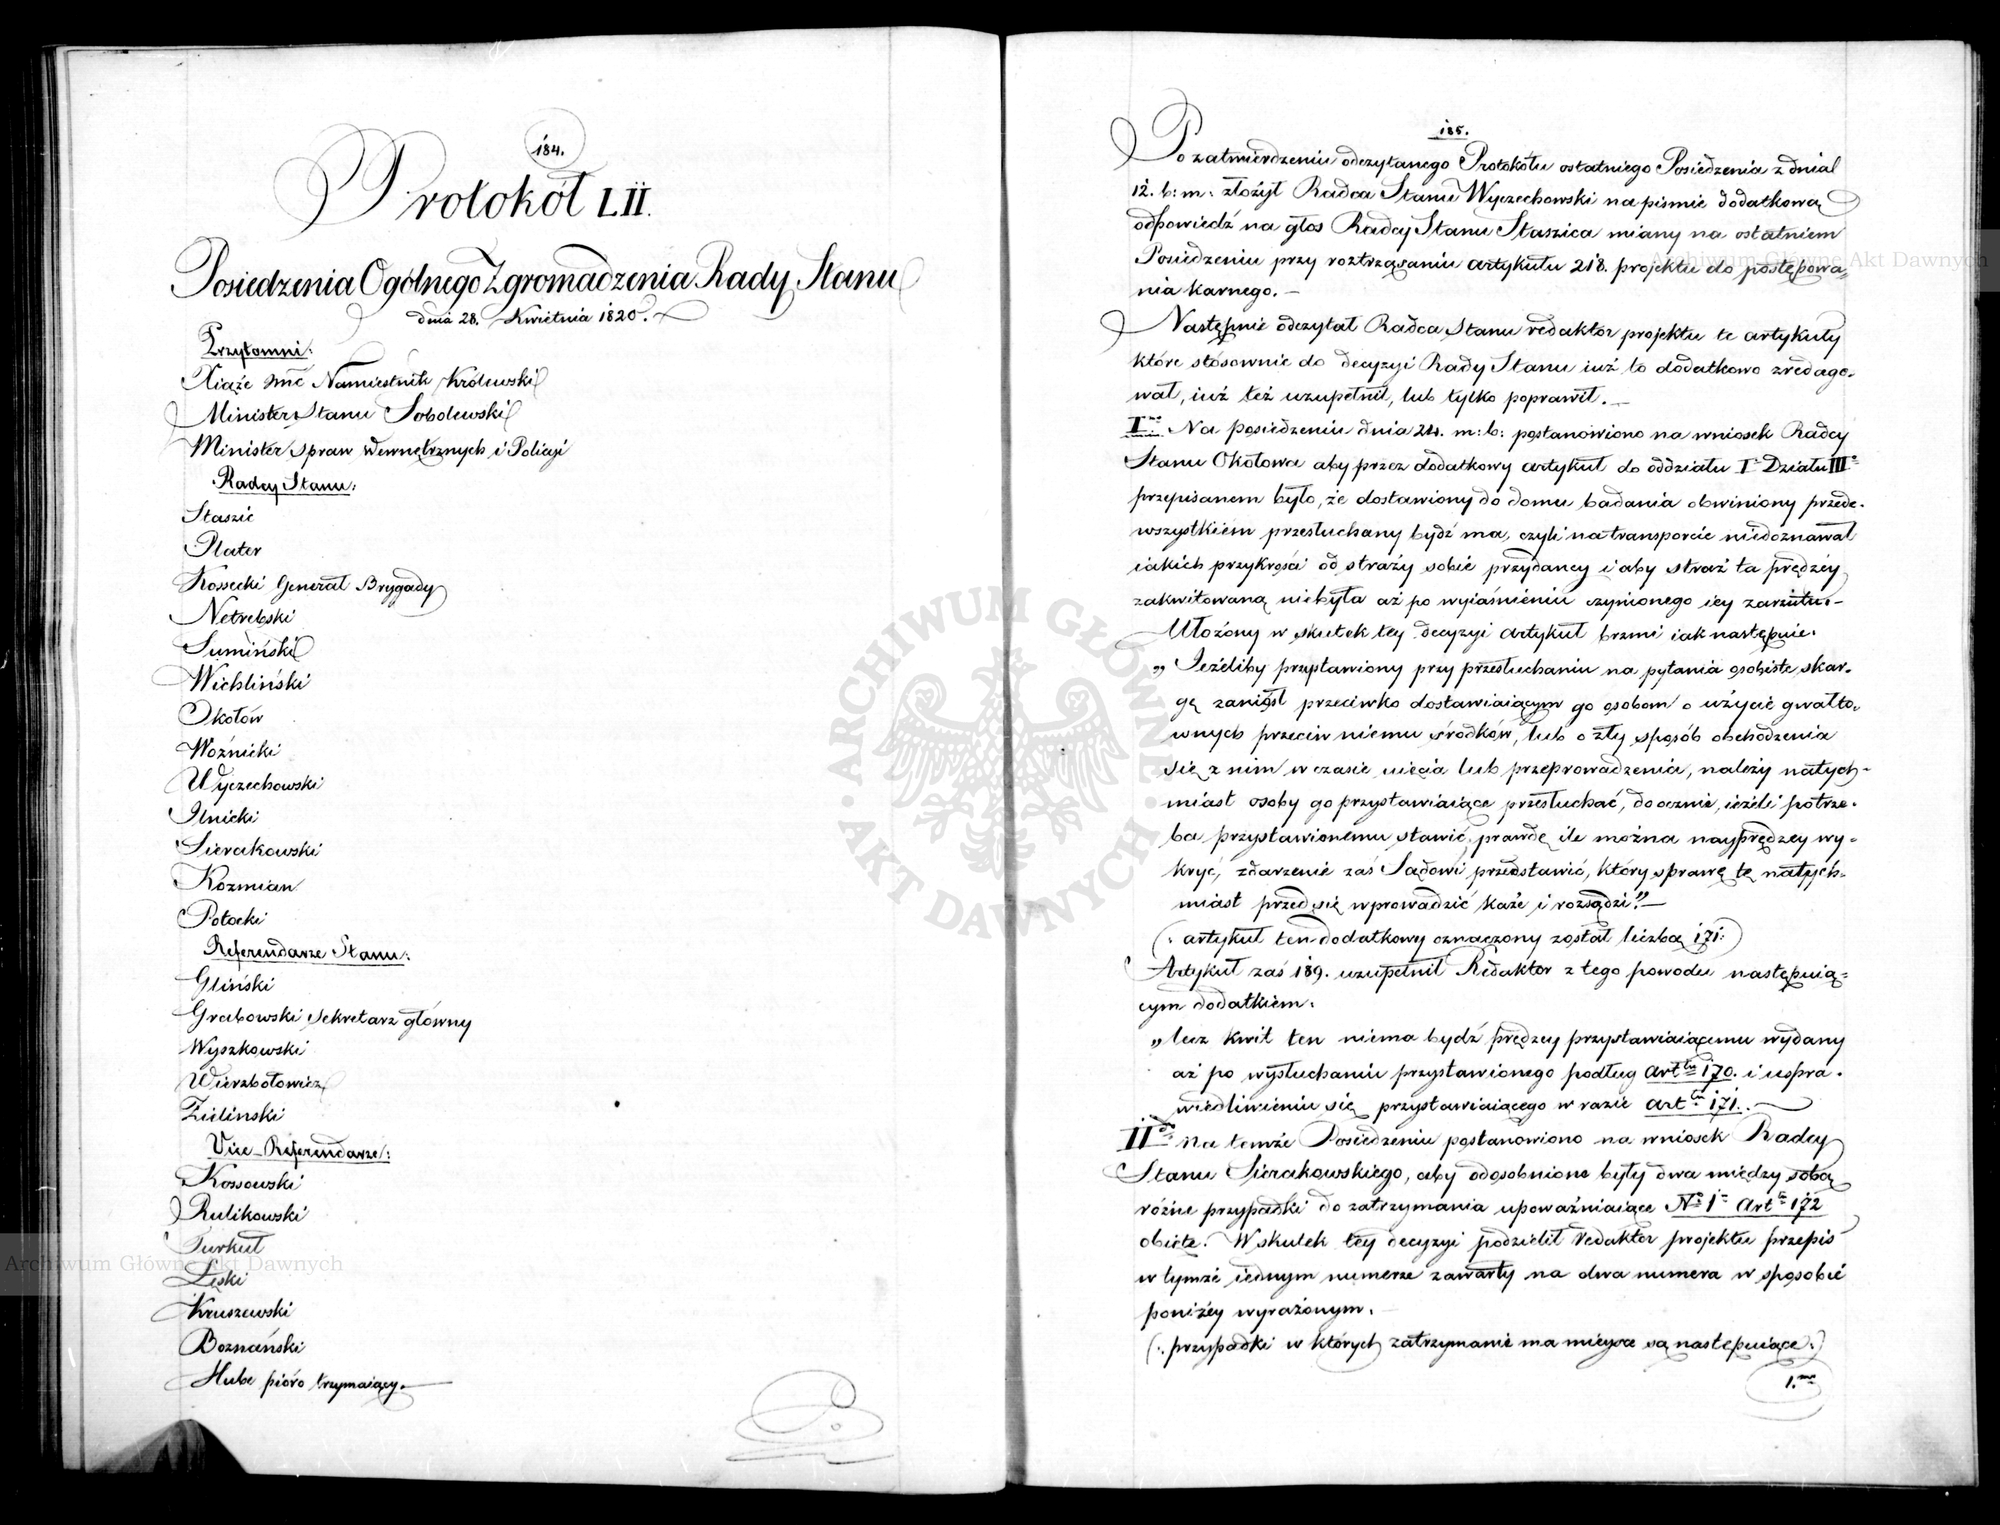 184.
Protokół LII.
Posiedzenia Ogólnego Zgromadzenia Rady Stanu
dnia 28. Kwietnia 1820.
Przytomni:
Xiąże Jmć Namiestnik Królewski
Minister Stanu Sobolewski
Minister Spraw Wewnętrznych i Policyi
Radcy Stanu:
Staszic
Plater
Kossecki Generał Brygady
Netrebski
Sumiński
Wichliński
Okołów
Woźnicki
Wyczechowski
Ilnicki
Sierakowski
Koźmian
Potocki
Referendarze Stanu:
Gliński
Grabowski Sekretarz główny
Wyszkowski
Wierzbołowicz
Zieliński
Vice-Referendarze:
Kossowski
Rulikowski
Turkuł
Łęski
Kruszewski
Boznański
Hube pióro trzymaiący.
185.
Po zatwierdzeniu odczytanego Protokółu ostatniego Posiedzenia z dnia
12. b: m: złożył Radca Stanu Wyczechowski na piśmie dodatkową
odpowiedź na głos Radcy Stanu Staszica miany na ostatniem
Posiedzeniu przy roztrząsaniu artykułu 218. projektu do postępowa-
nia karnego.
Następnie odczytał Radca Stanu redaktor projektu te artykuły
które stósownie do decyzyi Rady Stanu iuż to dodatkowo zredago-
wał, iuż też uzupełnił, lub tylko poprawił.
I.mo Na posiedzeniu dnia 24. m: b: postanowiono na wniosek Radcy
Stanu Okołowa aby przez dodatkowy artykuł do oddziału I° Działu III°
przepisanem było, że dostawiony do domu badania obwiniony przede-
wszystkiem przesłuchany bydź ma, czyli na transporcie niedoznawał
iakich przykrości od straży sobie przydaney i aby straż ta prędzéy
zakwitowaną niebyła aż po wyiaśnieniu czynionego iey zarzutu.
Ułożony w skutek tey decyzyi artykuł brzmi iak następuie.
„ Jeżeliby przystawiony przy przesłuchaniu na pytania osobiste skar-
gę zaniósł przeciwko dostawiaiącym go osobom o użycie gwałto-
wnych przeciw niemu środków, lub o zły sposób obchodzenia
się z nim w czasie uięcia lub przeprowadzenia, należy natych-
miast osoby go przystawiaiące przesłuchać, do ocznie, ieżeli potrze-
ba przystawionemu stawić, prawdę ile można nayprędzey wy-
kryć, zdarzenie zaś Sądowi przedstawić, który sprawę tę natych-
miast przed się wprowadzić każe i rozsądzi."
(: artykuł ten dodatkowy oznaczony został liczbą 171:)
Artykuł zaś 189. uzupełnił Redaktor z tego powodu następuią-
cym dodatkiem.
„ lecz kwit ten niema bydź prędzey przystawiaiącemu wydany
aż po wysłuchaniu przystawionego podług artłu 170. i uspra-
wiedliwieniu się przystawiaiącego w razie artłu 171.
IIdo Na temże Posiedzeniu postanowiono na wniosek Radcy
Stanu Sierakowskiego, aby odosobnione były dwa między sobą
różne przypadki do zatrzymania upoważniaiące No 1 artłu 172
obięte. W skutek tey decyzyi podzielił redaktor projektu przepis
w tymże iednym numerze zawarty na dwa numera w sposobie
poniżéy wyrażonym.
(: przypadki w których zatrzymanie ma mieysce są następuiące:)
1.mo
Archiwum Główne Akt Dawnych
Archiwum Główne Akt Dawnych
ARCHIWUM GŁÓWNE AKT DAWNYCH